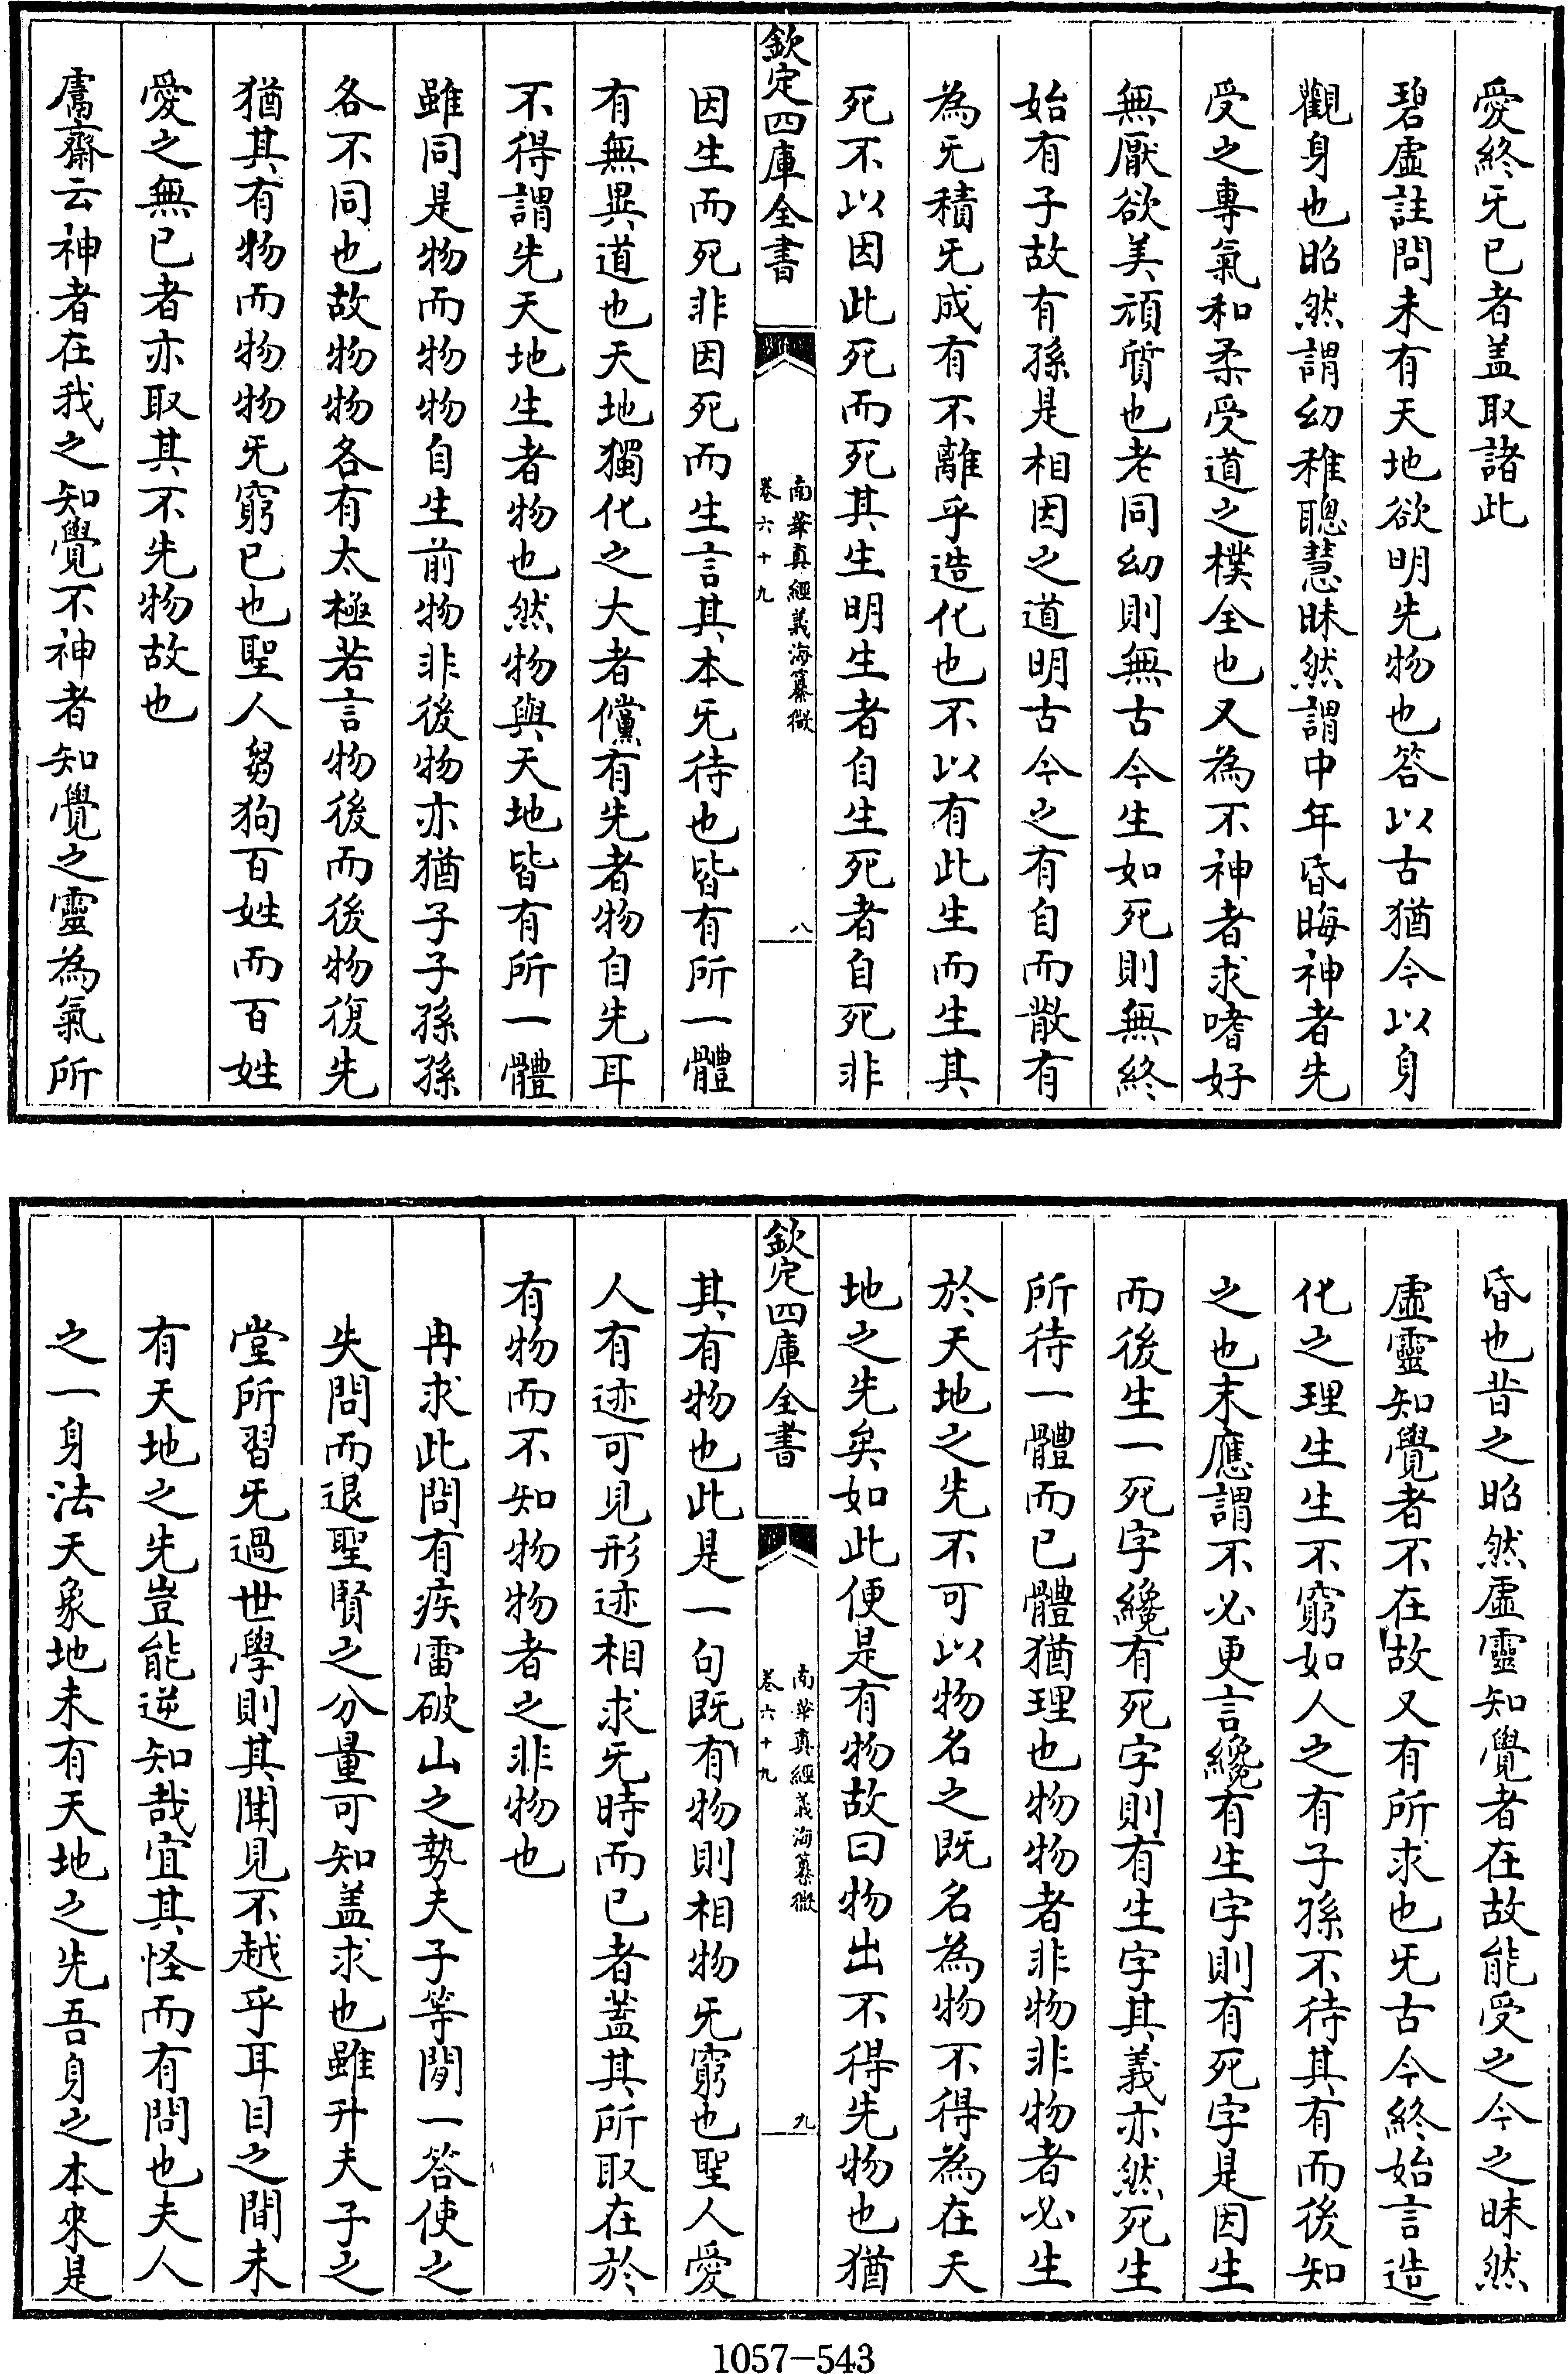 愛終旡已者盖取諸此
碧虛註問未有天地欲明先物也答以古猶今以身
觀身也昭然謂幼稚聰慧昧然謂中年昏晦神者先
受之專氣和柔受道之樸全也又為不神者求嗜好
無厭欲美頑質也老同幼則無古今生如死則無終
始有子故有孫是相因之道明古今之有自而散有
為旡積旡成有不離乎造化也不以有此生而生其
死不以因此死而死其生明生者自生死者自死非
欽定四庫全書
南華真經義海纂微
卷六十九
八
因生而死非因死而生言其本旡待也皆有所一體
有無異道也天地獨化之大者儻有先者物自先耳
不得謂先天地生者物也然物與天地皆有所一體
雖同是物而物物自生前物非後物亦猶子子孫孫
各不同也故物物各有太極若言物後而後物復先
猶其有物而物物旡窮已也聖人芻狗百姓而百姓
愛之無已者亦取其不先物故也
鬳齋云神者在我之知覺不神者知覺之靈為氣所
昏也昔之昭然虛靈知覺者在故能受之今之昧然
虛靈知覺者不在故又有所求也旡古今終始言造
化之理生生不窮如人之有子孫不待其有而後知
之也末應謂不必更言纔有生字則有死字是因生
而後生一死字纔有死字則有生字其義亦然死生
所待一體而已體猶理也物物者非物非物者必生
於天地之先不可以物名之既名為物不得為在天
地之先矣如此便是有物故曰物出不得先物也猶
欽定四庫全書
南華真經義海纂微
卷六十九
九
其有物也此是一句既有物則相物旡窮也聖人愛
人有迹可見形迹相求旡時而已者蓋其所取在於
有物而不知物物者之非物也
冉求此問有疾雷破山之勢夫子等閒一答使之
失問而退聖賢之分量可知盖求也雖升夫子之
堂所習旡過世學則其聞見不越乎耳目之間未
有天地之先豈能逆知哉宜其怪而有問也夫人
之一身法天象地未有天地之先吾身之本來是
1057-543